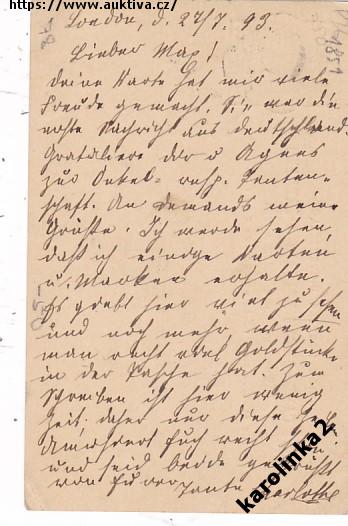 https - www.auktiva.cz/
London, d. 27/7. 93.
Lieber Max!
Deine Karte hat mir viele
Freude gemacht. Sie war die
erste Nachricht aus Deutschland.
Gratuliere dir u Agnes
zur Onkel- resp. Tanten-
schaft. An demands meine
Grüsse. Ich werde sehen,
daß ich einige Karten
u. Marken erhalte.
Es giebt hier viel zu sehen
und noch mehr wenn
man recht viel Goldstücke
in der Tasche hat. Zum
Schreiben ist hier wenig
Zeit, daher nur diese
Euch recht
und seid beide gegrüßt
von Eurer
Tante Charlotte
karolinka2